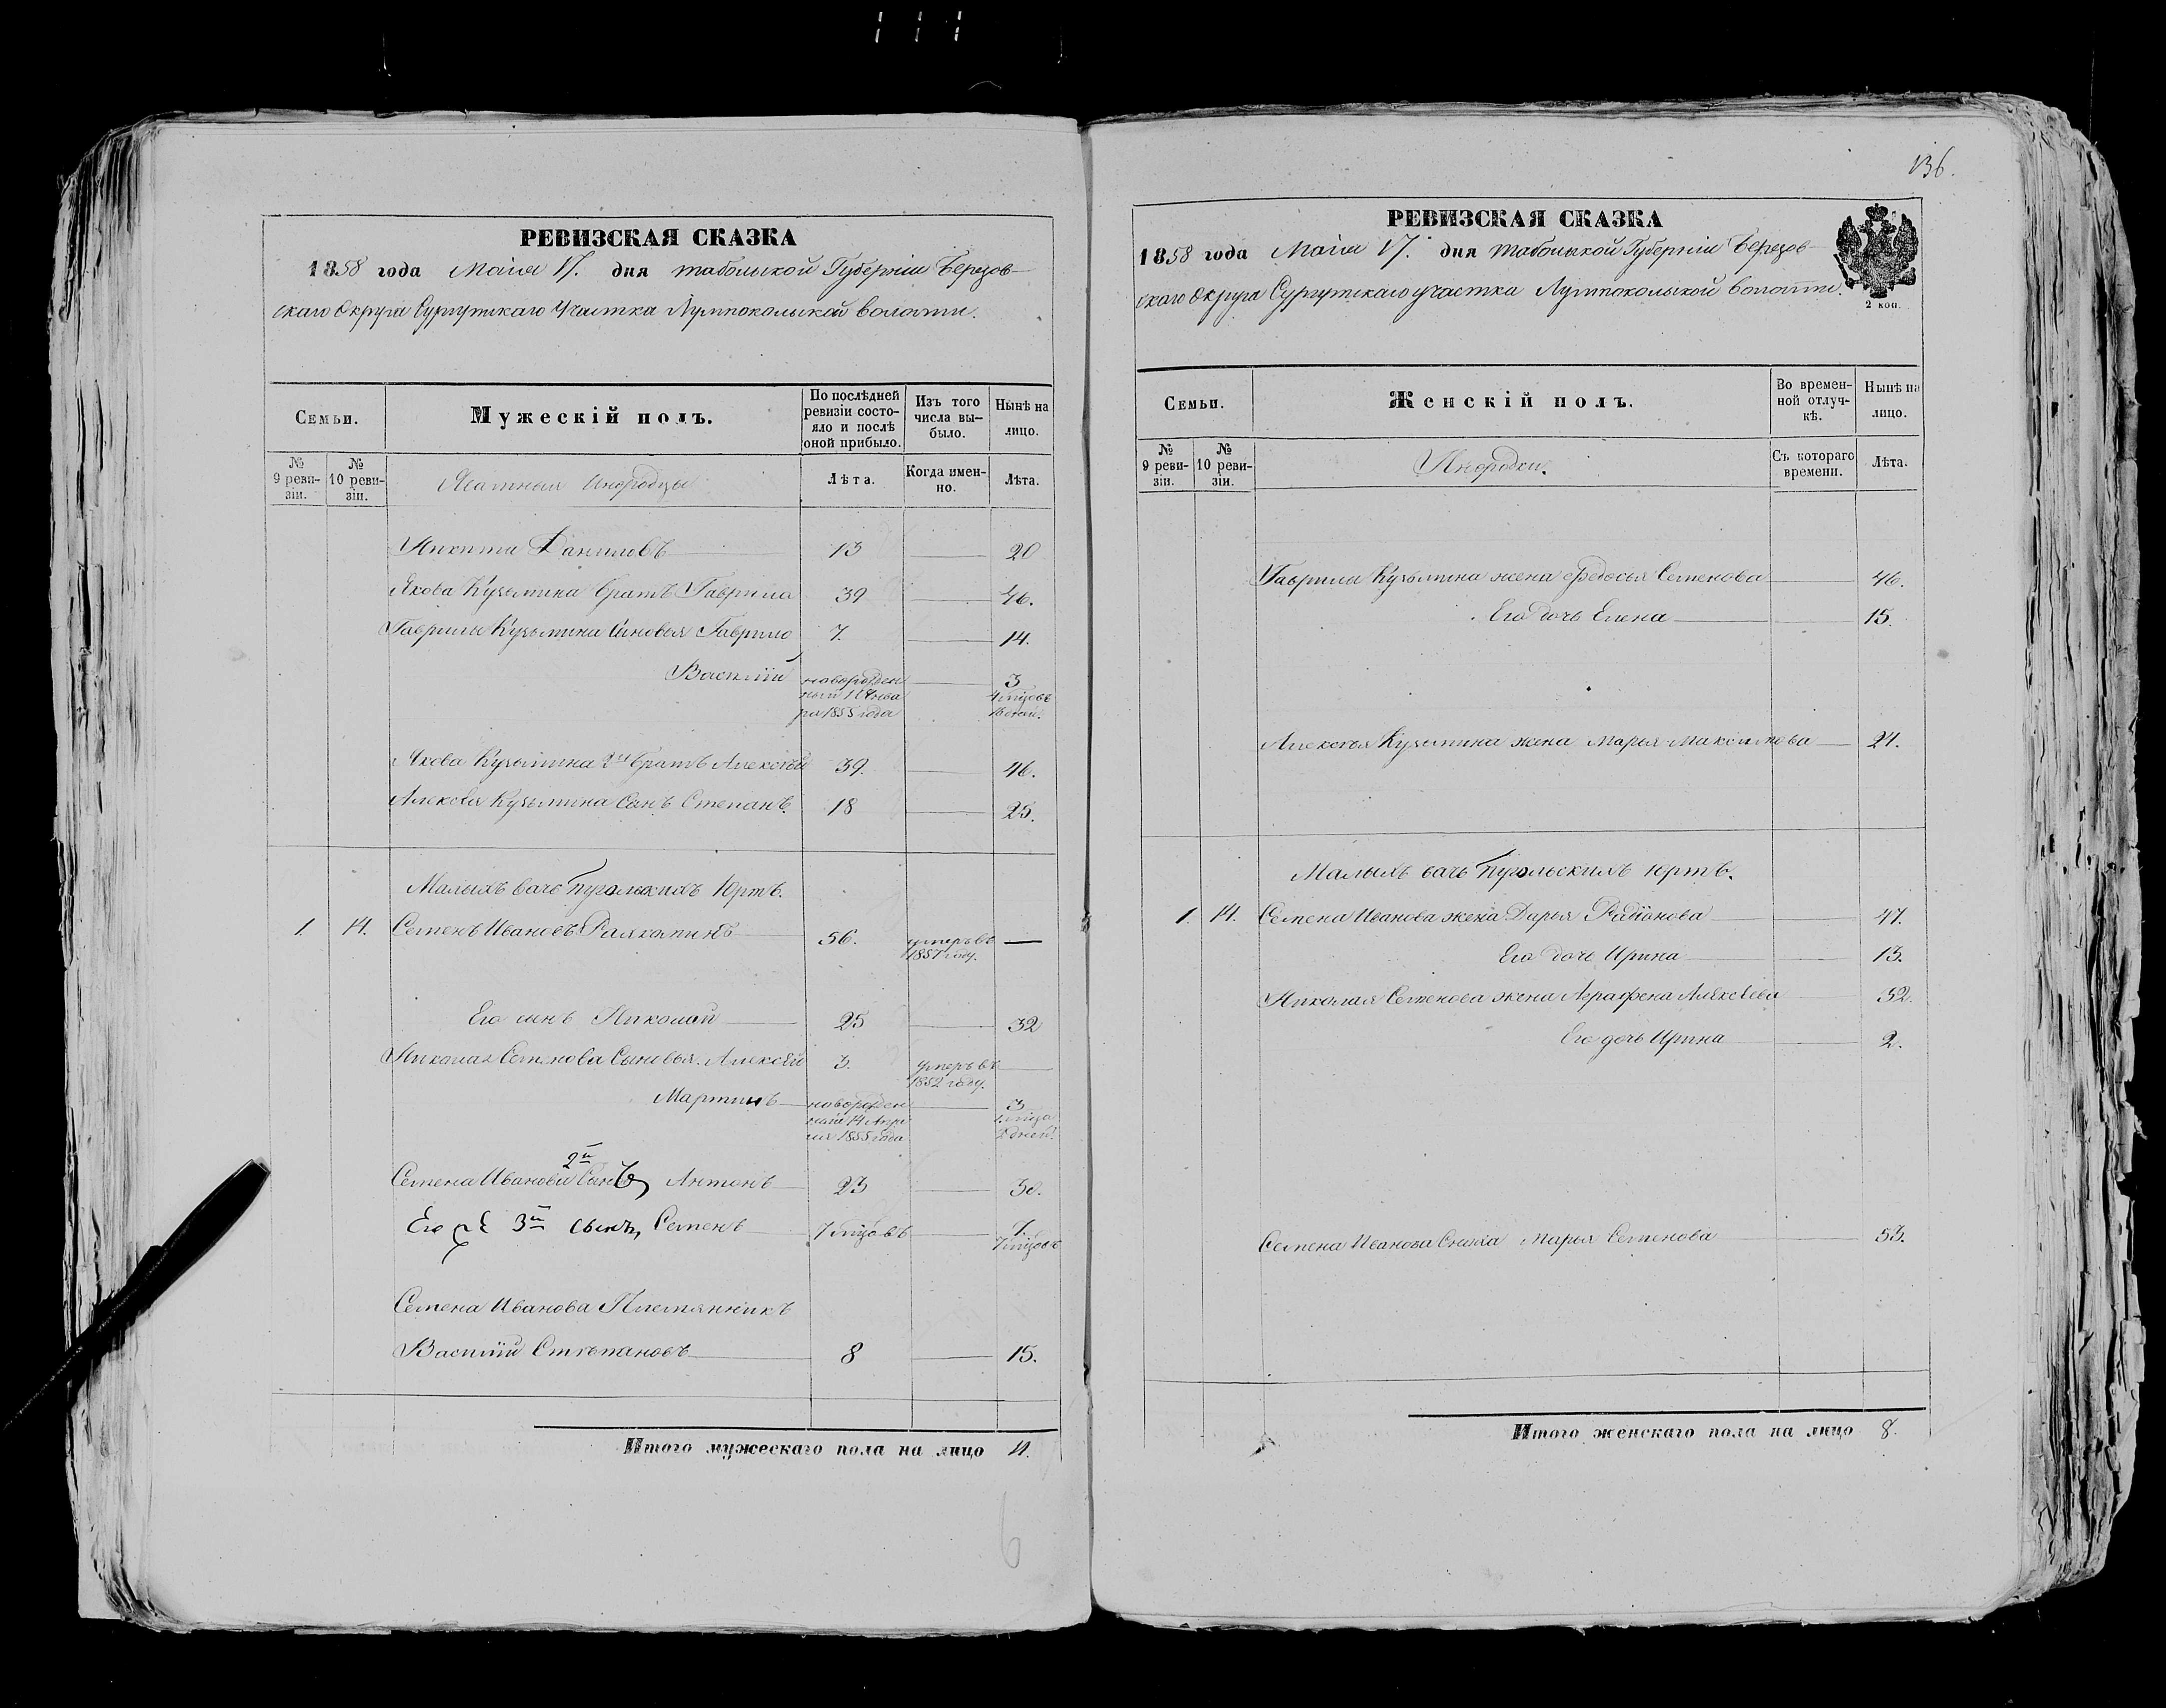 136.
РЕВИЗСКАЯ СКАЗКА
1858 года Маія 17. дня Табольской Губерніи Березов-
скаго Округа Сургутскаго Участка Лумпокольской волости.
Семьи.
Мужескій полъ.
По послѣдней ревизіи состояло и послѣ оной прибыло.
Изъ того числа выбыло.
Нынѣ на лицо.
№ 9 ревизіи.
№ 10 ревизіи.
Ясашныя Инородцы
Лѣта.
Когда именно.
Лѣта.
Никита Даниловъ 13 20
Якова Кузьмина братъ Гаврила 39 46.
Гаврилы Кузьмина сыновья Гаврило 7. 14.
Василій новорожден 3
ный 1 Янва 4 мѣцовъ
ря 1855 года 16 дней.
Якова Кузьмина 2й братъ Алексѣй 39. 46.
Алексѣя Кузьмина Сынъ Степанъ. 18 25.
Малыхъ вачь Пугольскихъ Юртъ.
1. 14. Семенъ Ивановъ 56. умеръ въ —
1857 году.
Его сынъ Николай 25 32
Николая Семенова Сыновья. Алексѣй 3. умеръ въ
1852 году.
Мартинъ новорожден 3
ный 14 Апрѣ 1 мѣца
ля 1855 года 3 дней.
2й
Семена Иванова Сынъ Антонъ 23 30.
Его же 3й сынъ, Семенъ 7 мѣцовъ 7.
7 мѣцовъ
Семена Иванова Племянникъ
Василій Стѣпановъ 8 15.
Итого мужескаго пола на лицо 11.
6
РЕВИЗСКАЯ СКАЗКА
1858 года Маія 17. дня Табольской Губерніи Березов-
скаго Округа Сургутскаго участка Лумпокольской волости.
2 коп.
Семьи.
Женскій полъ.
Во временной отлучкѣ.
Нынѣ на лицо.
№ 9 ревизіи.
№ 10 ревизіи.
Инородки.
Съ котораго времени.
Лѣта.
Гаврилы Кузьмина жена Федосья Семенова 46.
Его дочь Елена 15.
Алексѣя Кузьмина жена Марья Максимова 21.
Малыхъ вачь Пугольскихъ юртъ.
1. 14. Семена Иванова жена Дарья Радіонова 47.
Его дочь Ирина 13.
Николая Семенова жена Аграфена Алексѣева 32.
Его дочь Ирина 2.
Семена Иванова Сноха Марья Семенова 53.
Итого женскаго пола на лицо 8.